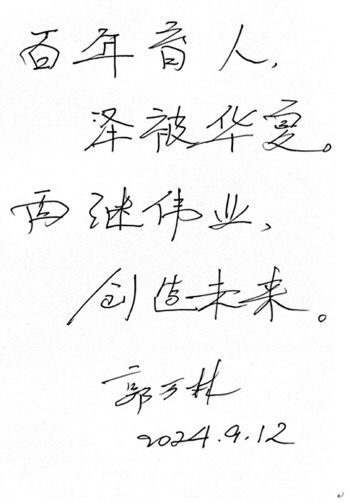 百年育人,
泽被华夏。
再继伟业,
创造未来。
郭万林
2024.9.12